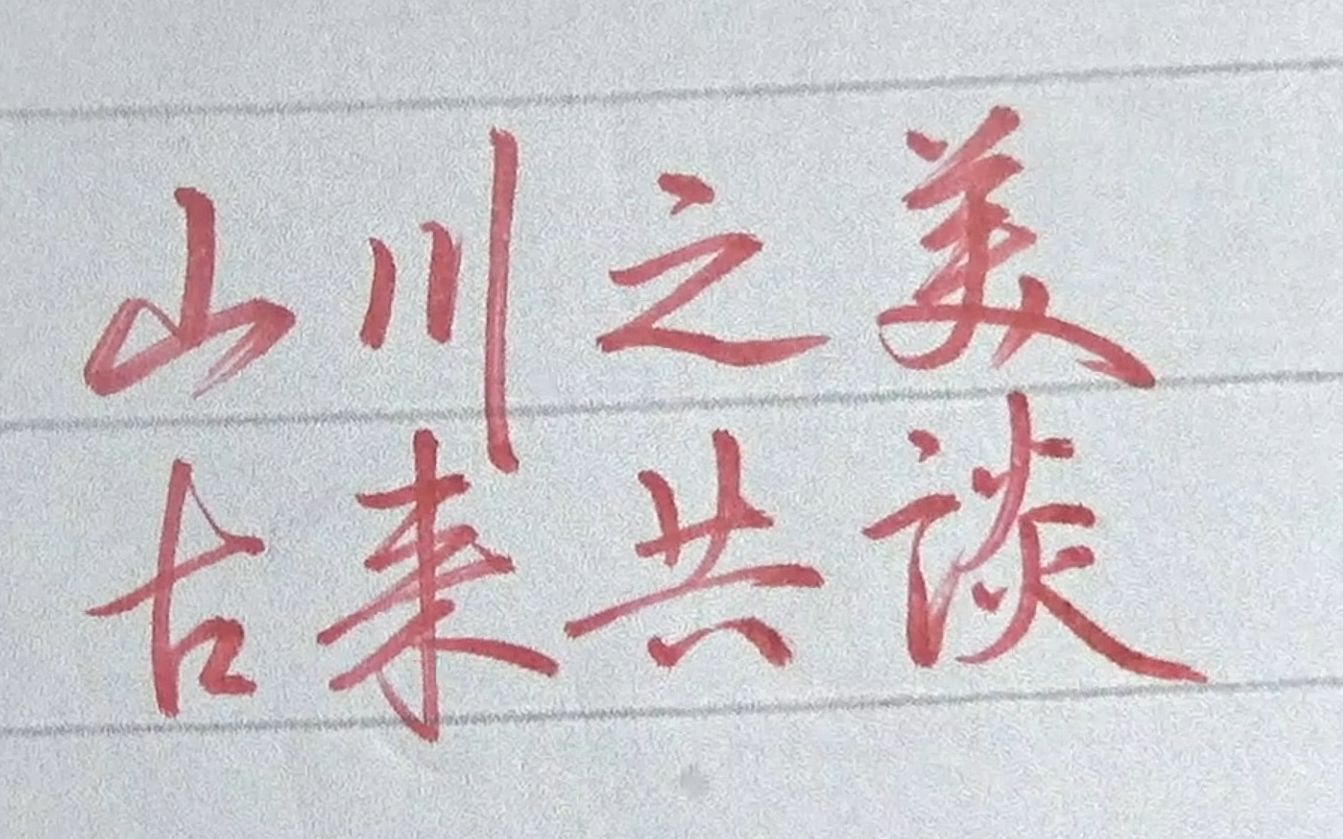 山川之美
古来共谈